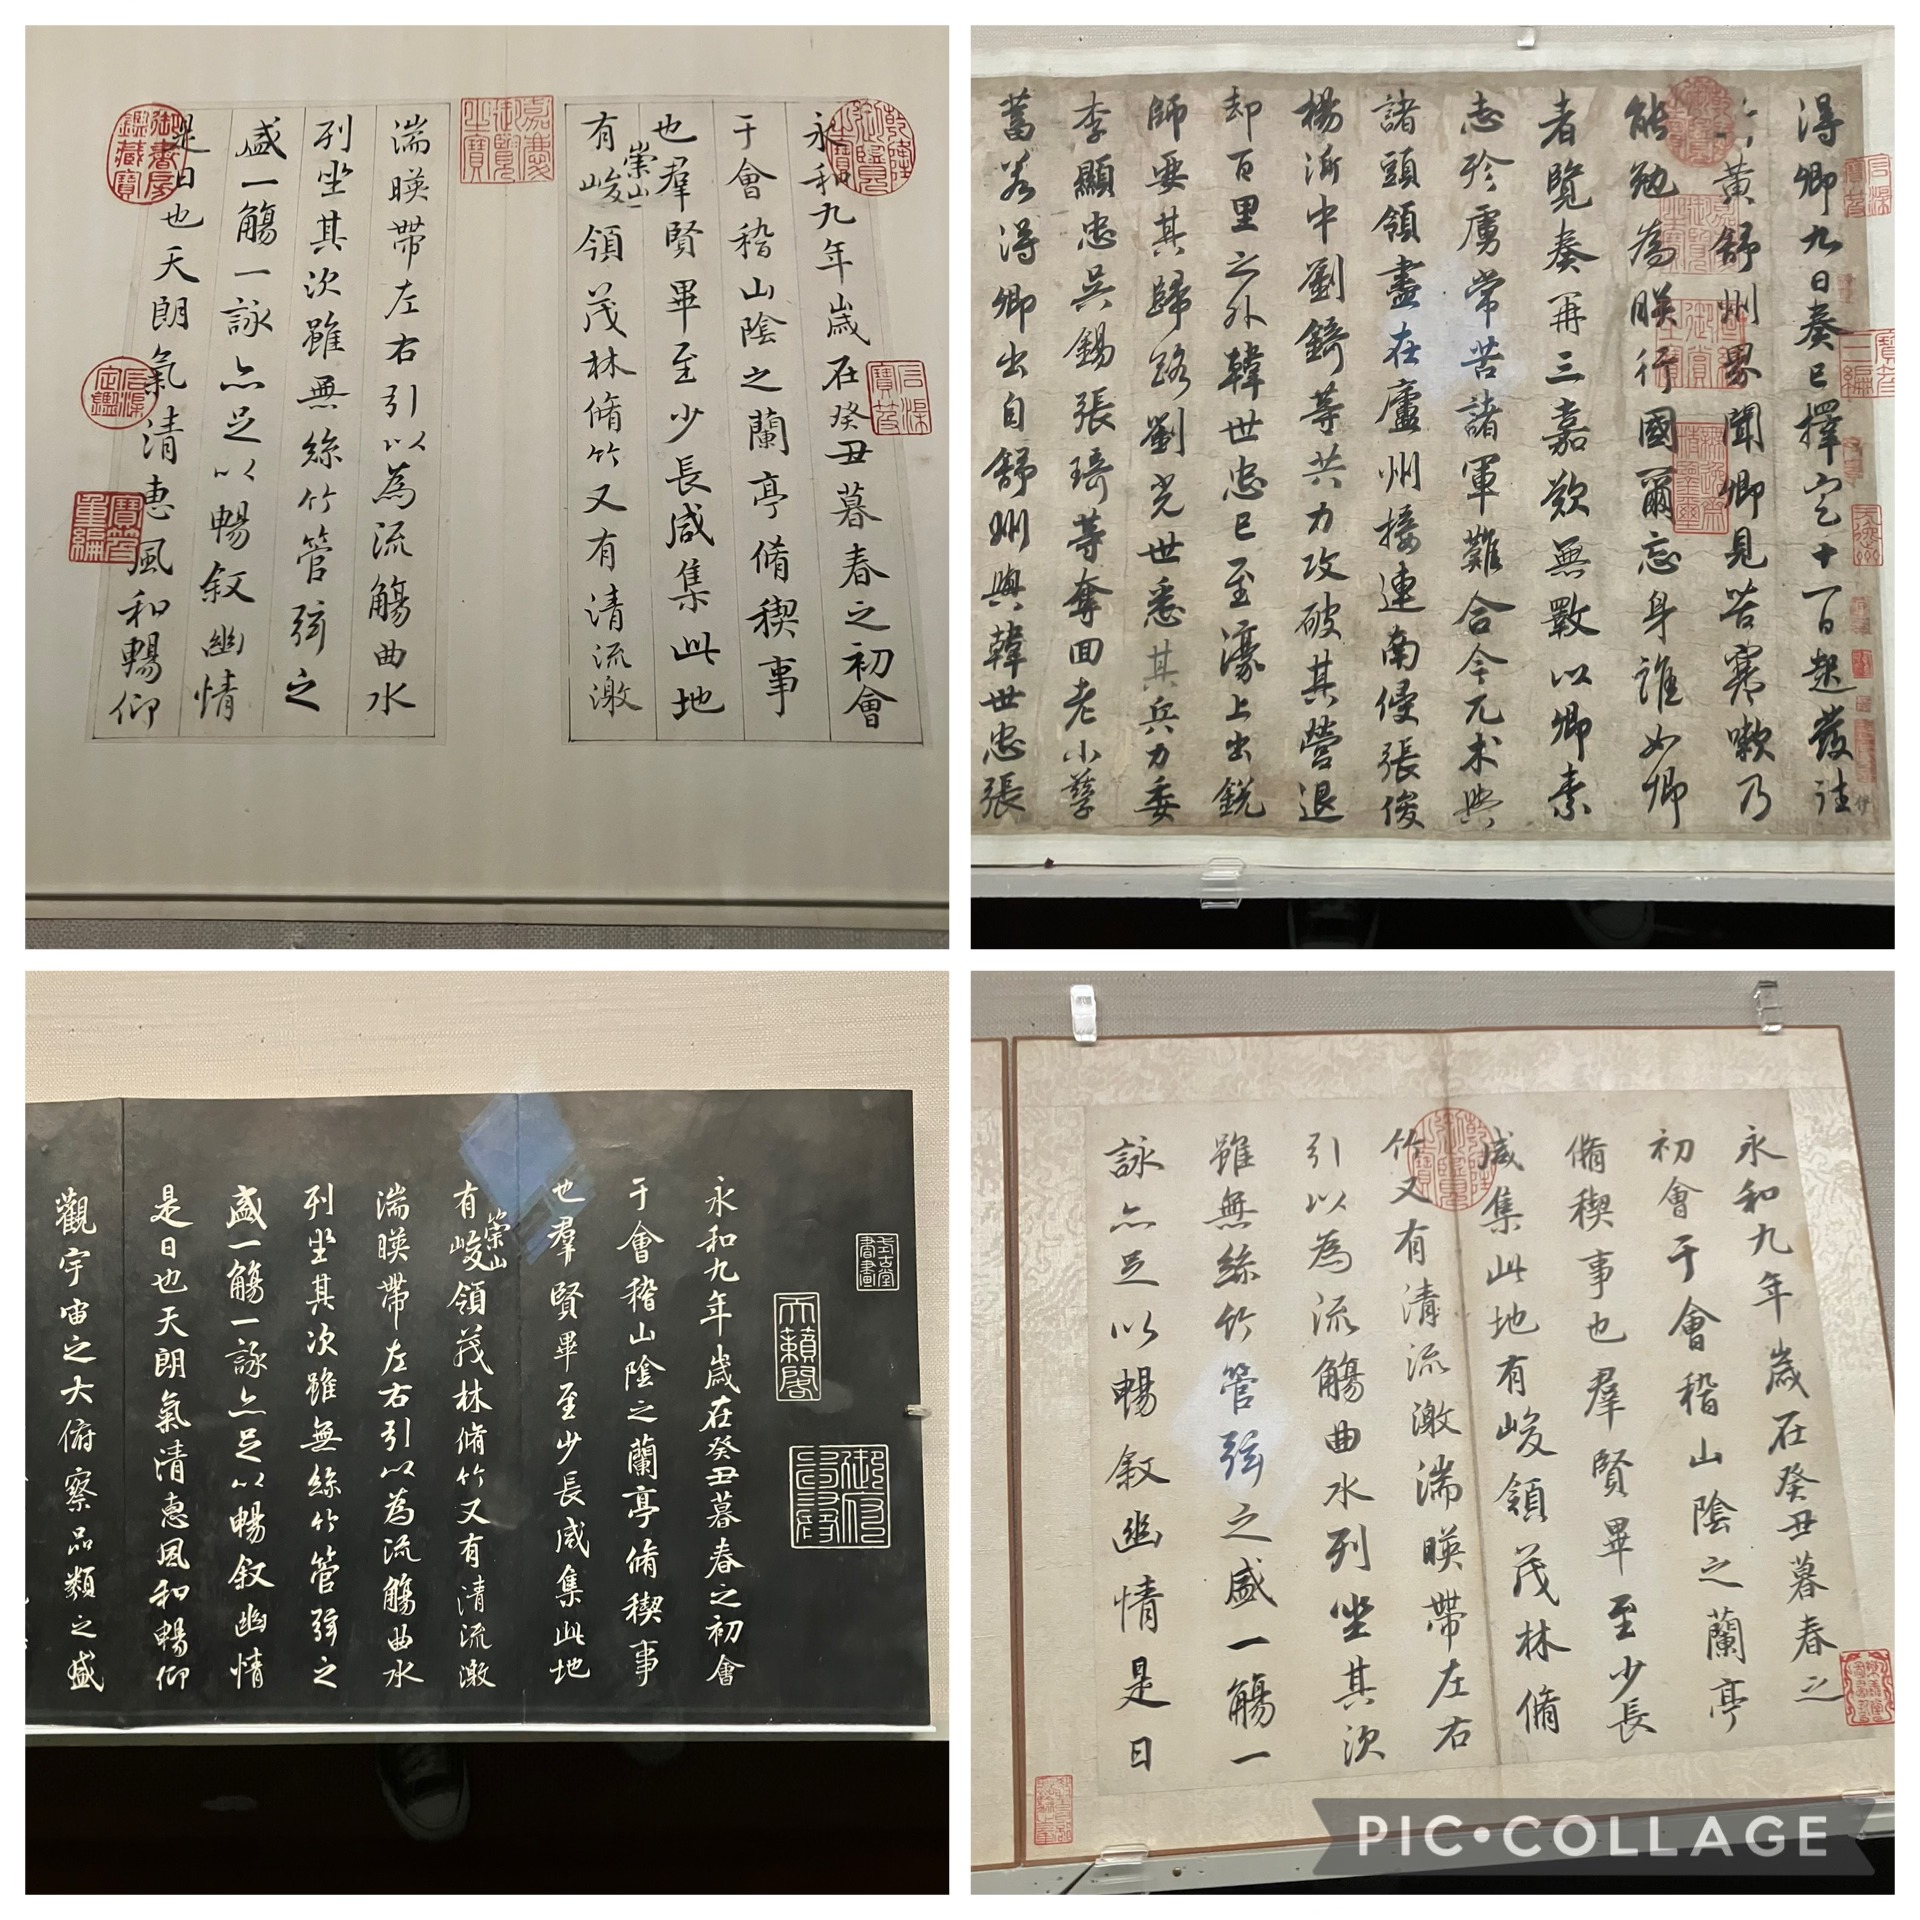 永和九年歲在癸丑暮春之初會
于會稽山陰之蘭亭脩稧事
也羣賢畢至少長咸集此地
有崇山峻領茂林脩竹又有清流激
湍暎帶左右引以為流觴曲水
列坐其次雖無絲竹管弦之
盛一觴一詠亦足以暢敘幽情
是日也天朗氣清惠風和暢仰
乾隆御覽之寶
石渠寶笈
嘉慶御覽之寶
御書房鑑藏寶
石渠定鑑
寶笈重編
得卿九日奏已擇定十一日起發往
黃舒州界聞卿見苦寒嗽乃
能勉為朕行國爾忘身誰如卿
者覽奏再三嘉歎無斁以卿素
志殄虜常苦諸軍難合今兀朮與
諸頭領盡在廬州接連南侵張俊
楊沂中劉錡等共力攻破其營退
却百里之外韓世忠已至濠上出銳
師要其歸路劉光世悉其兵力委
李顯忠吳錫張琦等奪回老小孳
畜若得卿出自舒州與韓世忠張
石渠寶笈
永和九年歲在癸丑暮春之初會
于會稽山陰之蘭亭脩稧事
也羣賢畢至少長咸集此地
有崇山峻領茂林脩竹又有清流激
湍暎帶左右引以為流觴曲水
列坐其次雖無絲竹管弦之
盛一觴一詠亦足以暢敘幽情
是日也天朗氣清惠風和暢仰
觀宇宙之大俯察品類之盛
天籟閣
永和九年歲在癸丑暮春之
初會于會稽山陰之蘭亭
脩稧事也羣賢畢至少長
咸集此地有峻領茂林脩
竹又有清流激湍暎帶左右
引以為流觴曲水列坐其次
雖無絲竹管弦之盛一觴一
詠亦足以暢敘幽情是日
乾隆御覽之寶
PIC•COLLAGE